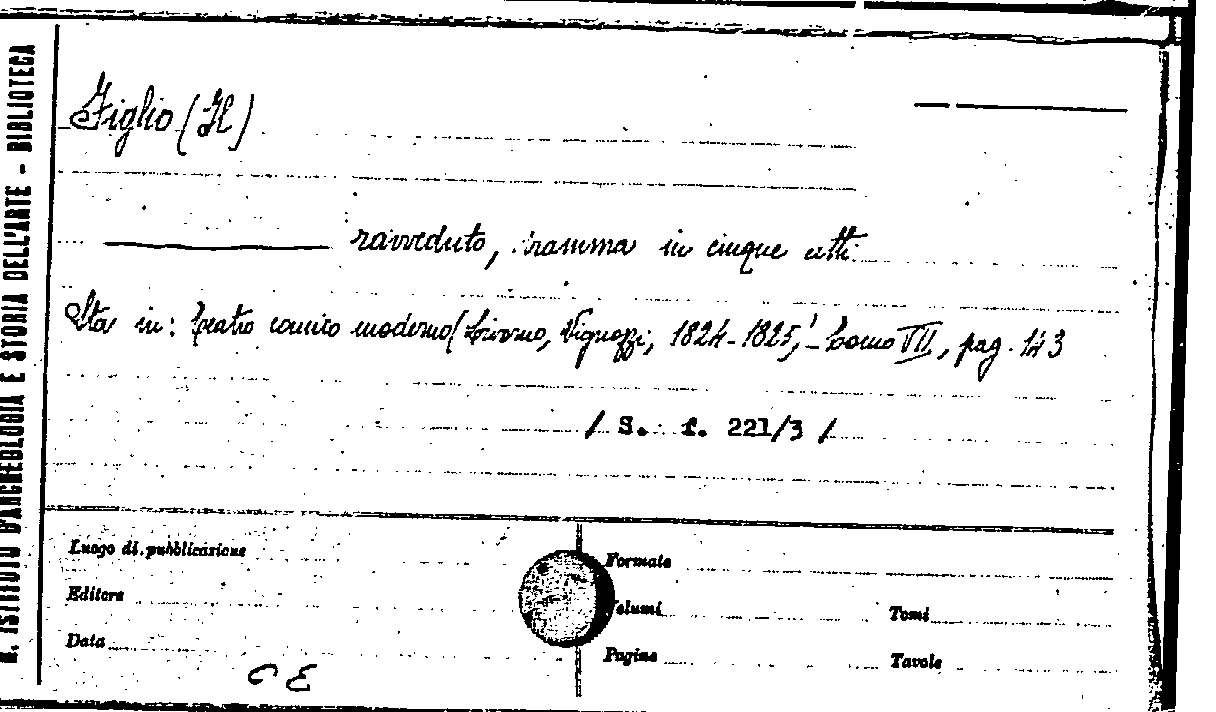 R. ISTITUTO D'ARCHEOLOGIA E STORIA DELL'ARTE - BIBLIOTECA
Figlio (Il)
ravveduto, dramma in cinque atti.
Sta in: Teatro comico moderno (Livorno, Vignozzi, 1824-1825, - Tomo VII, pag. 143
/ S. f. 221/3 /
Luogo di pubblicazione
Formato
Editore
Volumi
Tomi
Data
Pagine
Tavole
C E